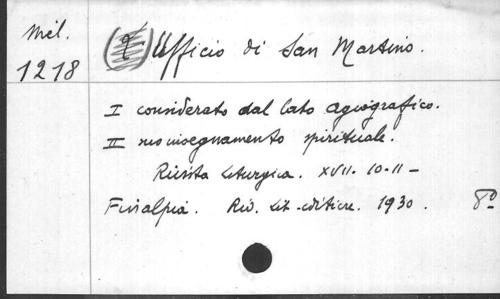 Mél.
1218
(L') Ufficio di San Martino.
I considerato dal lato agiografico.
II suo insegnamento spirituale.
Rivista Liturgica. XVII. 10-11 -
Finalpia. Riv. Lit. editice. 1930. 8º